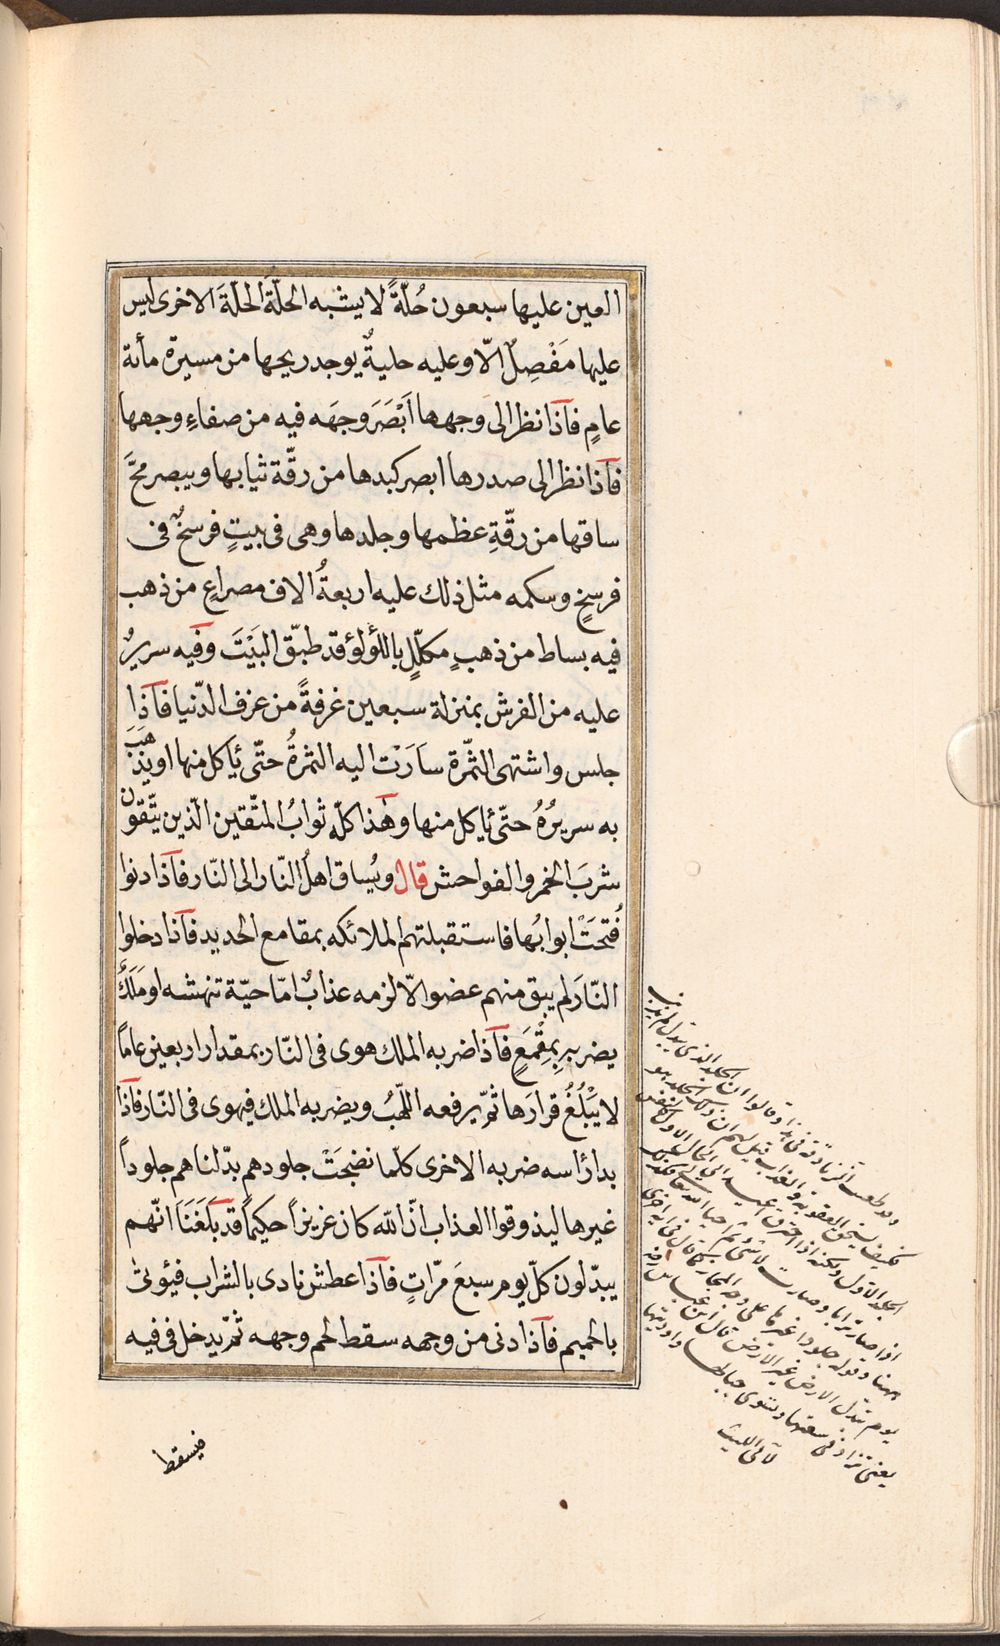 العين عليها سبعون حُلّةً لا يشبه الحلّةَ الحلّةَ الاخرى ليس
عليها مَفْصِلٌ الّا وعليه حليةٌ يوجد ريحها من مسيرة مأئة
عامٍ فآذا نظر الى وجهها اَبْصَرَ وجهَه فيه من صفاءِ وجهها
فآذا نظر الى صدرها ابصر كبدها من رقّة ثيابها ويبصر مخَّ
ساقها من رقّةِ عظمها وجلدها وهى فى بيتٍ فرسخٌ فى
فرسخٍ وسكمه مثل ذلك عليه اربعةُ الاف مصراعٍ من ذهب
فيه بساط من ذهبٍ مكلّلٍ باللُؤلؤ قد طبّق البَيْتَ وفيه سريرٌ
عليه من الفرش بمنزلة سبعين غرفةً من غرف الدّنيا فآذا
جلس واشتهى الثّمرة سَارَتْ اليه الثمرةُ حتّى يأكل منها او يذهَبَ
به سريرُهُ حتّى يأكل منها وهٰذا كلّه ثوابُ المتّقين الّذين يتّقون
شربَ الخمر والفواحش قال ويُساق اهلُ النّار الى النّار فآذا دنوا
فُتحَتْ ابوابُها فاستقبلتهم الملائكه بمقامع الحديد فآذا دخلوا
النّارَ لم يبق منهم عضو الّا لزمه عذابٌ امّا حيّة تنهشه او مَلَكٌ
يضربه بِمِقْمَعٍ فآذا ضربه الملك هوى فى النّار بمقدار اربعين عاماً
لا يَبْلُغُ قرارَها ثمّ يرفعه اللّهبُ ويضربه الملك فيهوى فى النّار فآذا
بدا رٔاسه ضربه الاخرى كلّما نضجَتْ جلودهم بدّلناهم جلوداً
غيرها ليذوقوا العذاب انّ اللّه كان عزيزاً حكيماً قد بَلَغَنَا انّهم
يبدّلون كلّ يوم سبعَ مرّاتٍ فآذا عطش نادى بالشراب فيُوتىٰ
بالحميم فآذا دنى من وجهه سقط لحم وجهه ثمّ يدخل فى فيه
فيسقط
وقد طعن الزنادقة فى هذا وقالوا ان الجلد الذى
فكيف يستحق العقوبة والعذاب قيل لهم ان ذلك الجلد هو
الجلد الاول ولكنه اذا احترق اعيد الى الحال الاول
اذا صارت ترابا وصارت لا شئ ثم احيا الله
ههنا وقوله جلودا غيرها على وجه المجاز كما قال فى اية اخرى
يوم تبدّل الارض غير الارض قال ابن عباس
يعنى تزاد فى سعتها وتسوى جبالها واوديتها
لابى الليث